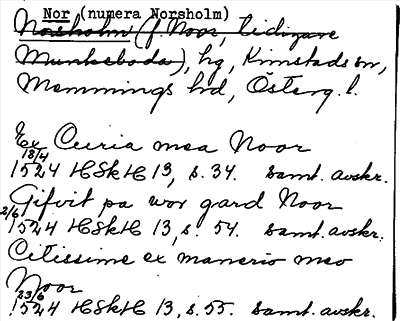 Nor (numera Norsholm)
Norsholm (f. Noor, tidigare
Munkeboda), hg, Kimstads sn,
Memmings hd, Österg. l.
Ex Curia mea Noor
18/4
1524 HSkH 13, s. 34. samt. avskr.
Gifvit pa wor gard Noor
2/6
1524 HSkH 13, s. 54. samt. avskr.
Citissime ex manerio meo
Noor
23/6
1524 HSkH 13, s. 55. samt. avskr.